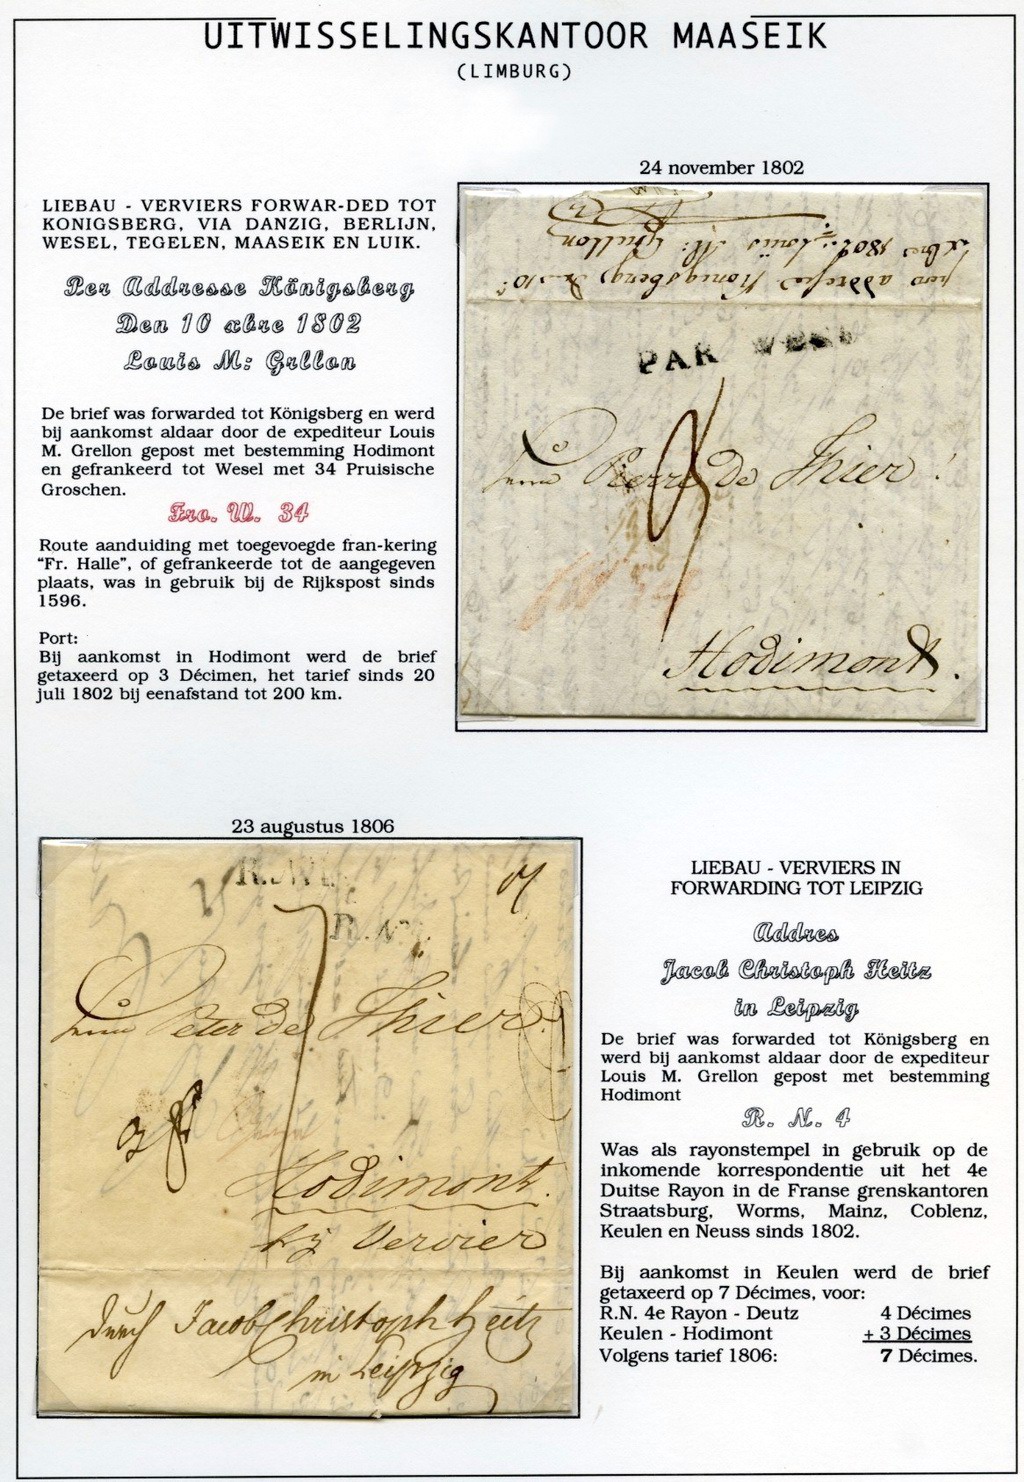 UITWISSELINGSKANTOOR MAASEIK
(LIMBURG)
24 november 1802
LIEBAU - VERVIERS FORWAR-DED TOT
KONIGSBERG, VIA DANZIG, BERLIJN,
WESEL, TEGELEN, MAASEIK EN LUIK.
Per Addresse Königsberg
Den 10 xbre 1802
Louis M: Grllon
De brief was forwarded tot Königsberg en werd
bij aankomst aldaar door de expediteur Louis
M. Grellon gepost met bestemming Hodimont
en gefrankeerd tot Wesel met 34 Pruisische
Groschen.
Fro. W. 34
Route aanduiding met toegevoegde fran-kering
“Fr. Halle”, of gefrankeerde tot de aangegeven
plaats, was in gebruik bij de Rijkspost sinds
1596.
Port:
Bij aankomst in Hodimont werd de brief
getaxeerd op 3 Décimen, het tarief sinds 20
juli 1802 bij eenafstand tot 200 km.
per addresse Konigsberg, den 10
xbre 1802. Louis M: Grellon
PAR WESEL
Pierre De Thier!
Hodimont.
23 augustus 1806
R.N.
Peter de Thier.
Hodimont.
bij Vervier
durch Jacob Christoph Heitz
in Leipzig
LIEBAU - VERVIERS IN
FORWARDING TOT LEIPZIG
Addres
Jacob Christoph Heitz
in Leipzig
De brief was forwarded tot Königsberg en
werd bij aankomst aldaar door de expediteur
Louis M. Grellon gepost met bestemming
Hodimont
R. N. 4
Was als rayonstempel in gebruik op de
inkomende korrespondentie uit het 4e
Duitse Rayon in de Franse grenskantoren
Straatsburg, Worms, Mainz, Coblenz,
Keulen en Neuss sinds 1802.
Bij aankomst in Keulen werd de brief
getaxeerd op 7 Décimes, voor:
R.N. 4e Rayon - Deutz 4 Décimes
Keulen - Hodimont + 3 Décimes
Volgens tarief 1806: 7 Décimes.